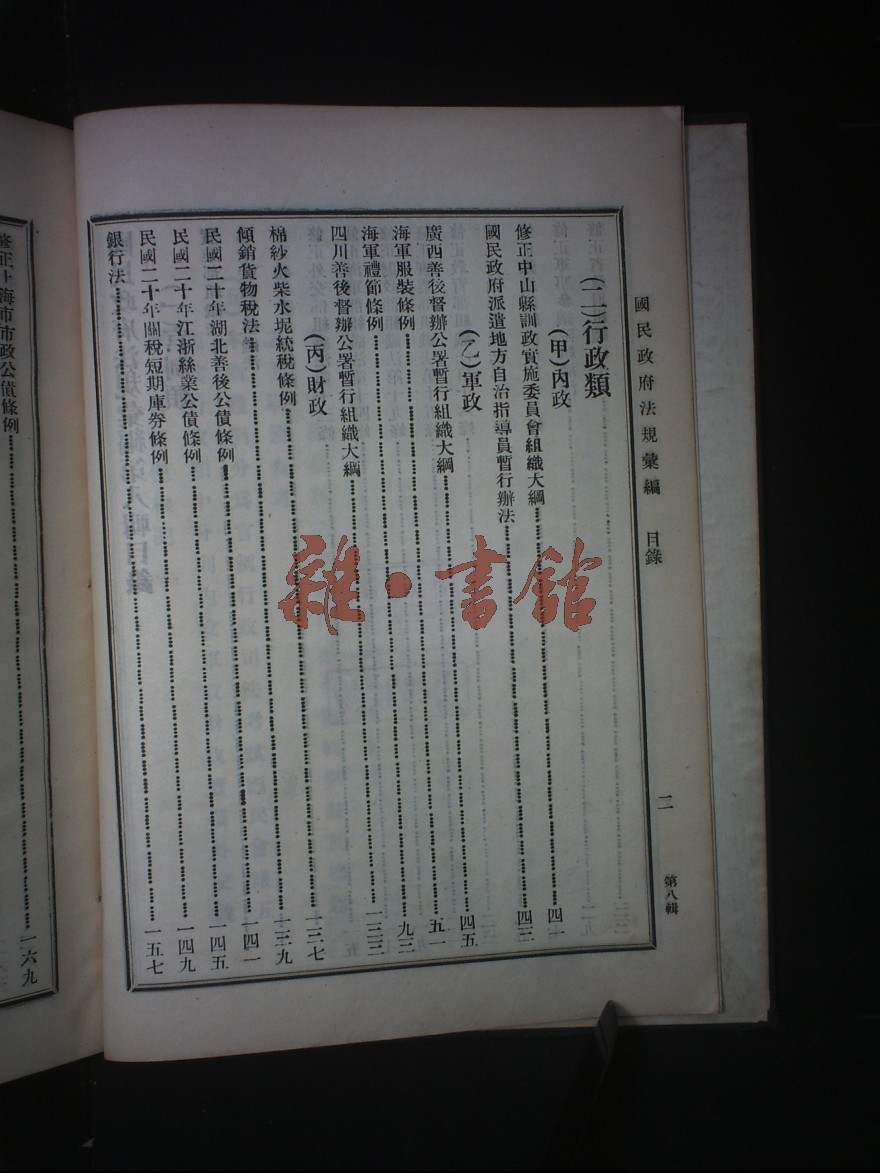 國民政府法規彙編　目錄　二　第八輯
(二)行政類
(甲)內政
修正中山縣訓政實施委員會組織大綱……四一
國民政府派遣地方自治指導員暫行辦法……四三
(乙)軍政
廣西善後督辦公署暫行組織大綱……四五
海軍服裝條例……五一
海軍禮節條例……九三
四川善後督辦公署暫行組織大綱……一三三
(丙)財政
棉紗火柴水坭統稅條例……一三七
傾銷貨物稅法……一三九
民國二十年湖北善後公債條例……一四一
民國二十年江浙絲業公債條例……一四五
民國二十年關稅短期庫券條例……一四九
銀行法……一五七
修正上海市市政公債條例……一六九
雜·書館